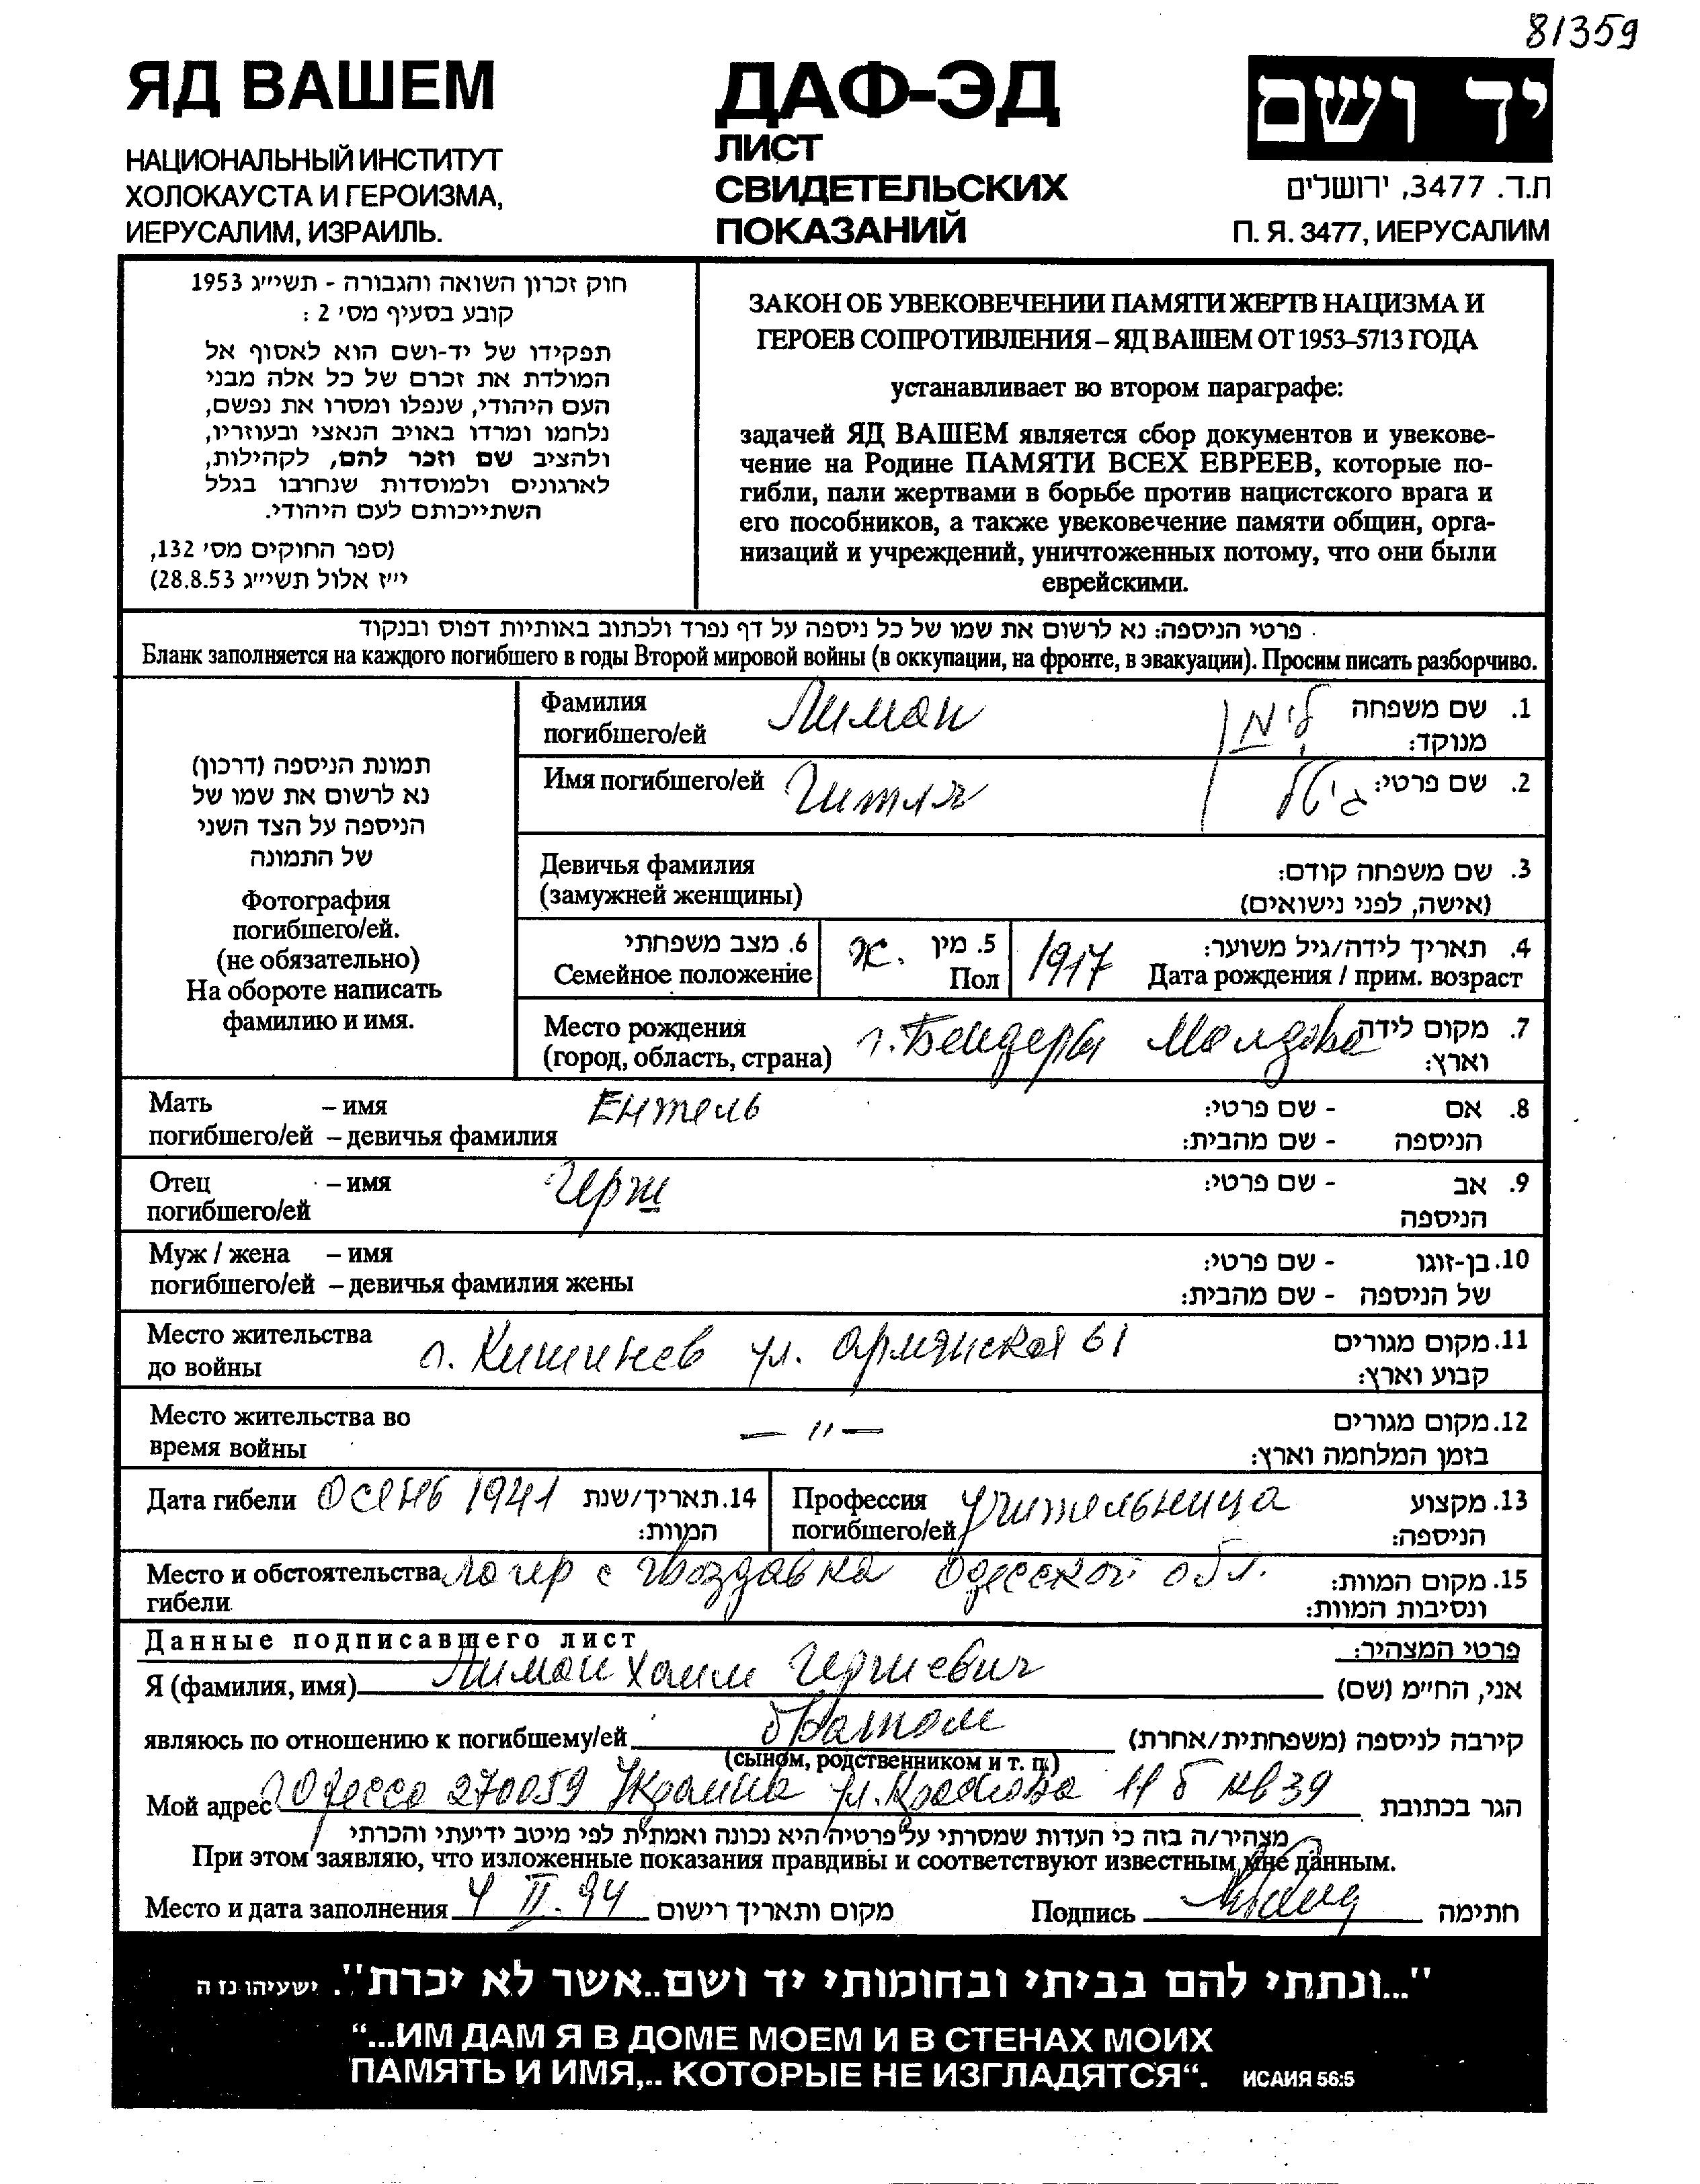 81359
ЯД ВАШЕМ
НАЦИОНАЛЬНЫЙ ИНСТИТУТ
ХОЛОКАУСТА И ГЕРОИЗМА,
ИЕРУСАЛИМ, ИЗРАИЛЬ.
ДАФ-ЭД
ЛИСТ
СВИДЕТЕЛЬСКИХ
ПОКАЗАНИЙ
יד ושם
ת.ד. 3477, ירושלים
П. Я. 3477, ИЕРУСАЛИМ
חוק זכרון השואה והגבורה - תשי״ג 1953
קובע בסעיף מס׳ 2 :
תפקידו של יד-ושם הוא לאסוף אל
המולדת את זכרם של כל אלה מבני
העם היהודי, שנפלו ומסרו את נפשם,
נלחמו ומרדו באויב הנאצי ובעוזריו,
ולהציב שם וזכר להם, לקהילות,
לארגונים ולמוסדות שנחרבו בגלל
השתייכותם לעם היהודי.
(ספר החוקים מס׳ 132,
י״ז אלול תשי״ג 28.8.53)
ЗАКОН ОБ УВЕКОВЕЧЕНИИ ПАМЯТИ ЖЕРТВ НАЦИЗМА И
ГЕРОЕВ СОПРОТИВЛЕНИЯ – ЯД ВАШЕМ ОТ 1953–5713 ГОДА
устанавливает во втором параграфе:
задачей ЯД ВАШЕМ является сбор документов и увекове-
чение на Родине ПАМЯТИ ВСЕХ ЕВРЕЕВ, которые по-
гибли, пали жертвами в борьбе против нацистского врага и
его пособников, а также увековечение памяти общин, орга-
низаций и учреждений, уничтоженных потому, что они были
еврейскими.
פרטי הניספה: נא לרשום את שמו של כל ניספה על דף נפרד ולכתוב באותיות דפוס ובנקוד
Бланк заполняется на каждого погибшего в годы Второй мировой войны (в оккупации, на фронте, в эвакуации). Просим писать разборчиво.
תמונת הניספה (דרכון)
נא לרשום את שמו של
הניספה על הצד השני
של התמונה
Фотография
погибшего/ей.
(не обязательно)
На обороте написать
фамилию и имя.
Фамилия Лиман לימן 1. שם משפחה
погибшего/ей מנוקד:
Имя погибшего/ей Гитля גיטל 2. שם פרטי:
Девичья фамилия 3. שם משפחה קודם:
(замужней женщины) (אישה, לפני נישואים)
6. מצב משפחתי ж. 5. מין 1917 4. תאריך לידה/גיל משוער:
Семейное положение Пол Дата рождения / прим. возраст
Место рождения г. Бендеры Молдова 7. מקום לידה
(город, область, страна) וארץ:
Мать – имя Ентель 8. אם - שם פרטי:
погибшего/ей – девичья фамилия הניספה - שם מהבית:
Отец – имя Герш 9. אב - שם פרטי:
погибшего/ей הניספה
Муж / жена – имя 10. בן-זוגו - שם פרטי:
погибшего/ей – девичья фамилия жены של הניספה - שם מהבית:
Место жительства г. Кишинев ул. Армянская 61 11. מקום מגורים
до войны קבוע וארץ:
Место жительства во — " — 12. מקום מגורים
время войны בזמן המלחמה וארץ:
Дата гибели Осень 1941 14. תאריך/שנת Профессия учительница 13. מקצוע
המוות: погибшего/ей הניספה:
Место и обстоятельства лагер с Гвоздавка Одесской обл. 15. מקום המוות:
гибели ונסיבות המוות:
Данные подписавшего лист פרטי המצהיר:
Я (фамилия, имя) Лиман Хаим Гершевич אני, החי״מ (שם)
являюсь по отношению к погибшему/ей братом קירבה לניספה (משפחתית/אחרת)
(сыном, родственником и т. п.)
Мой адрес г Одесса 270059 Украина ул. Краснова 11 б кв 39 הגר בכתובת
מצהיר/ה בזה כי העדות שמסרתי על פרטיה היא נכונה ואמתית לפי מיטב ידיעתי והכרתי
При этом заявляю, что изложенные показания правдивы и соответствуют известным мне данным.
Место и дата заполнения 4 II. 94 מקום ותאריך רישום Подпись חתימה
"...ונתתי להם בביתי ובחומותי יד ושם..אשר לא יכרת". ישעיהו נז ה
“...ИМ ДАМ Я В ДОМЕ МОЕМ И В СТЕНАХ МОИХ
ПАМЯТЬ И ИМЯ,.. КОТОРЫЕ НЕ ИЗГЛАДЯТСЯ“. ИСАИЯ 56:5